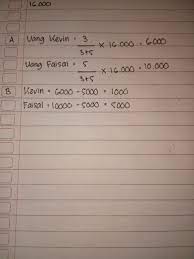 16.000
A Uang Kevin = 3/3+5 × 16.000 = 6000
Uang Faisal = 5/3+5 × 16.000 = 10.000
B Kevin = 6000 - 5000 = 1000
Faisal = 10000 - 5000 = 5000